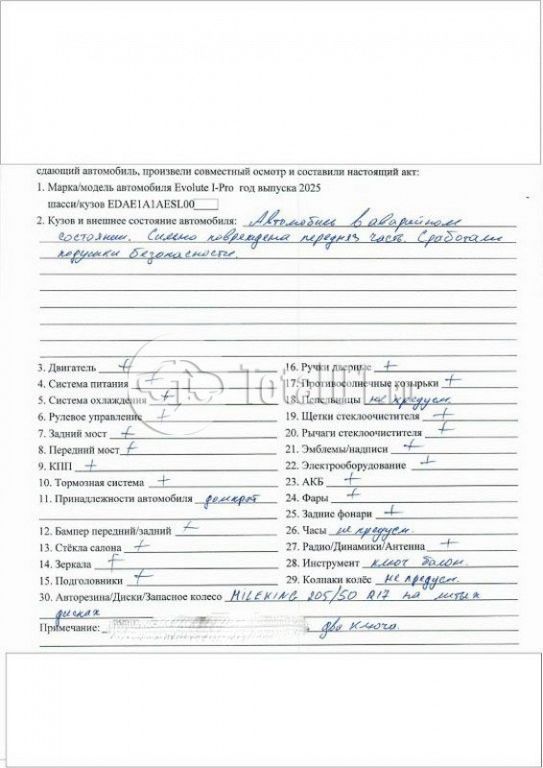 сдающий автомобиль, произвели совместный осмотр и составили настоящий акт:
1. Марка/модель автомобиля Evolute I-Pro год выпуска 2025
шасси/кузов EDAE1A1AESL00
2. Кузов и внешнее состояние автомобиля: Автомобиль в аварийном
состоянии. Сильно повреждена передняя часть. Сработали
подушки безопасности.
3. Двигатель +
4. Система питания +
5. Система охлаждения +
6. Рулевое управление +
7. Задний мост +
8. Передний мост +
9. КПП +
10. Тормозная система +
11. Принадлежности автомобиля домкрат
12. Бампер передний/задний +
13. Стёкла салона +
14. Зеркала +
15. Подголовники +
16. Ручки дверные +
17. Противосолнечные козырьки +
18. Пепельницы не предусм.
19. Щетки стеклоочистителя +
20. Рычаги стеклоочистителя +
21. Эмблемы/надписи +
22. Электрооборудование +
23. АКБ +
24. Фары +
25. Задние фонари +
26. Часы не предусм.
27. Радио/Динамики/Антенна +
28. Инструмент ключ балон.
29. Колпаки колёс не предусм.
30. Авторезина/Диски/Запасное колесо MILEKING 205/50 R17 на литых
дисках
Примечание: два ключа.